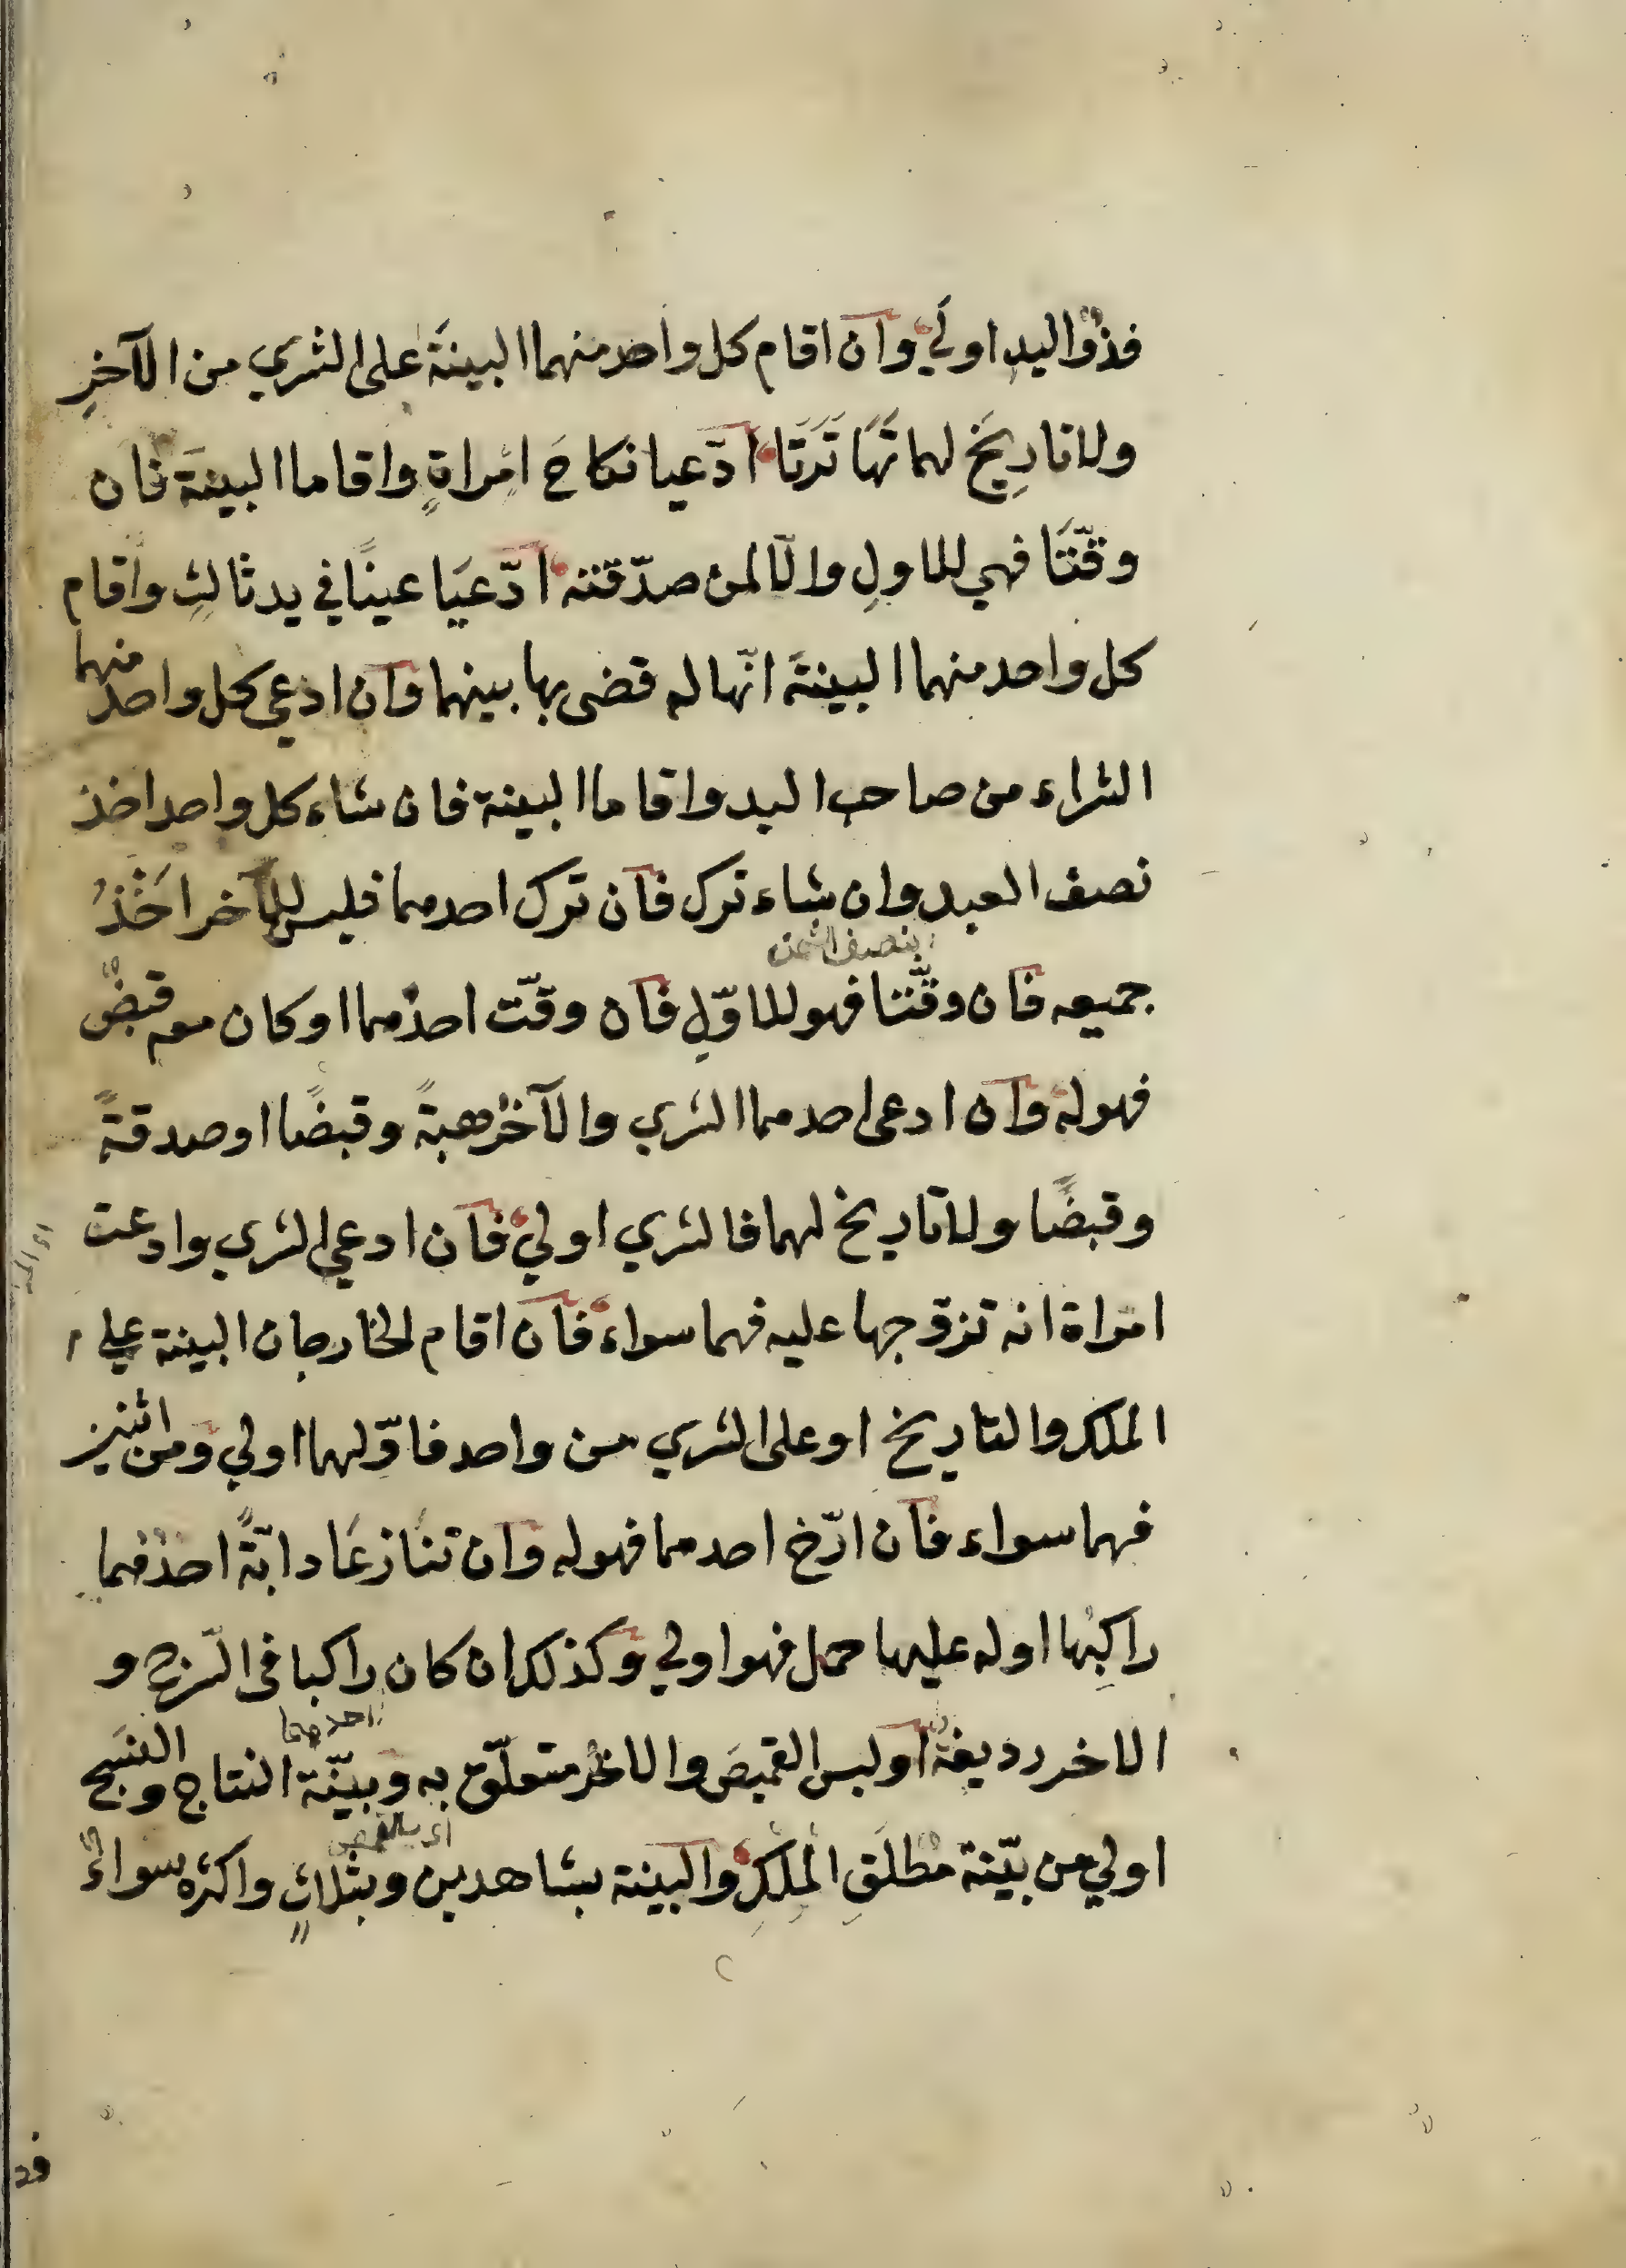 فذُوا اليدِ اولَي وان اقام كل واحد منهما البينَةَ على الشري من الآخرِ
ولا تاريخَ لهما تَهَاتَرَتَا ادّعيا نكاحَ امراةٍ واقاما البينَةَ فان
وقّتَتَا فهي للاولِ والّا لمن صدّقته ادّعَيَا عينًا في يد ثالثٍ واقام
كل واحد منهما البينةَ انّها له قضى بها بينهما وان ادعى كل واحد منهما
الشراء من صاحب اليد واقاما البينة فان شاء كل واحد اخذ
نصف العبد وان شاء ترك فان ترك احدهما فليس للآخر اخذُ
بنصف الثمن
جميعه فان وقّتتا فهو للاوّلِ فان وقّت احدُهما او كان معه قبضٌ
فهو له وان ادعى احدهما الشري والآخرُ هبةً وقبضًا او صدقةً
وقبضًا ولا تاريخ لهما فالشري اولي فان ادعي الشري وادعت
امراة انه تزوّجها عليه فهما سواء فان اقام الخارجان البينة علي
الملك والتاريخ او على الشري من واحد فاوّلهما اولي ومن اثنين
فهما سواء فان ارّخ احدهما فهو له وان تنازعَا دابّةً احدُهما
راكِبُها او له عليها حمل فهو اولي وكذلك ان كان راكبا في السّرج و
الاخر رديفهُ او لبس القميصَ والاخرُ متعلّقٌ به وبيّنة النتاج والنسج
احدهما
اولي من بيّنة مطلَقِ الملكِ والبينة بشاهدين وبثلاثٍ واكثره سواءٌ
اي بالقميص